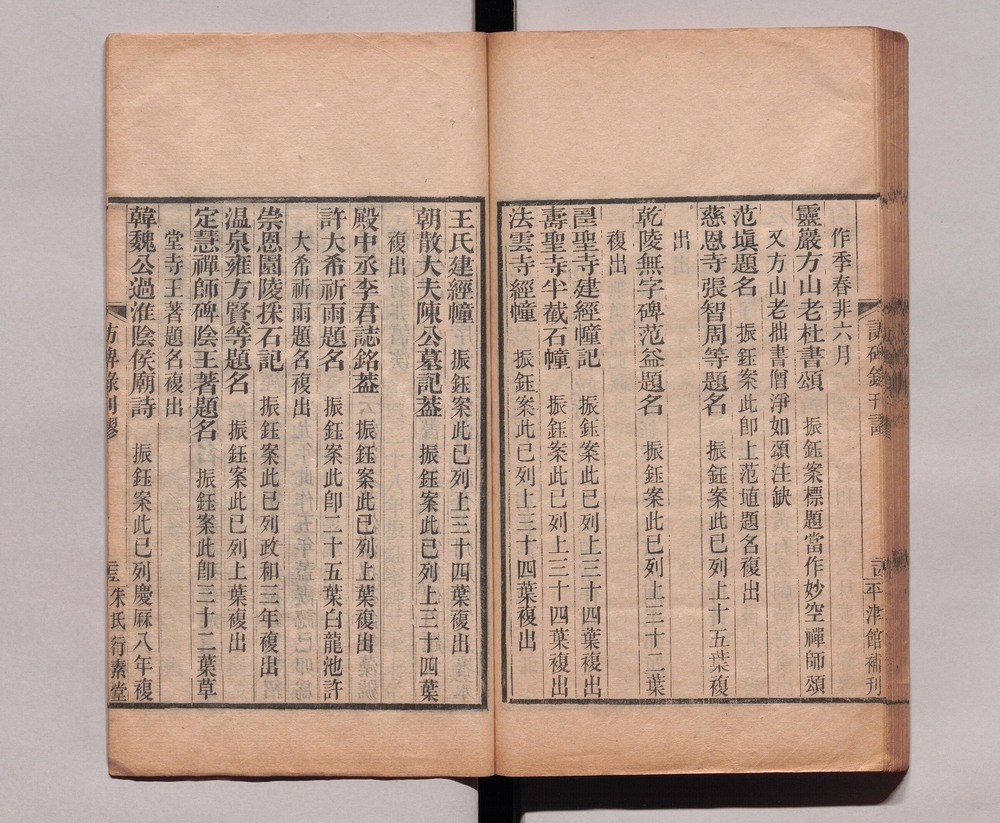 作季春非六月
靈巖方山老杜書頌 振鈺案標題當作妙空禪師頌
又方山老拙書僧淨如頌注缺
范塡題名 振鈺案此卽上范埴題名複出
慈恩寺張智周等題名 振鈺案此已列上十五葉複
出
乾陵無字碑范益題名 振鈺案此已列上三十二葉
複出
聖寺建經幢記 振鈺案此已列上三十四葉複出
壽聖寺半截石幢 振鈺案此已列上三十四葉複出
法雲寺經幢 振鈺案此已列上三十四葉複出
王氏建經幢 振鈺案此已列上三十四葉複出
朝散大夫陳公墓記蓋 振鈺案此已列上三十四葉
複出
殿中丞李君誌銘蓋 振鈺案此已列上葉複出
許大希祈雨題名 振鈺案此卽二十五葉白龍池許
大希祈雨題名複出
崇恩園陵採石記 振鈺案此已列政和三年複出
温泉雍方賢等題名 振鈺案此已列上葉複出
定慧禪師碑陰王著題名 振鈺案此卽三十二葉草
堂寺王著題名複出
韓魏公過淮陰侯廟詩 振鈺案此已列慶厤八年複
平津館補刊
訪碑錄刊謬
朱氏行素堂